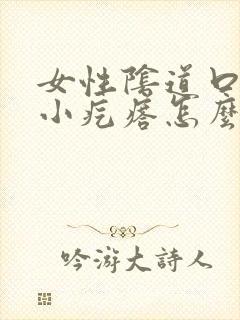 女性陰道口
小疙瘩怎麼
吟游大詩人